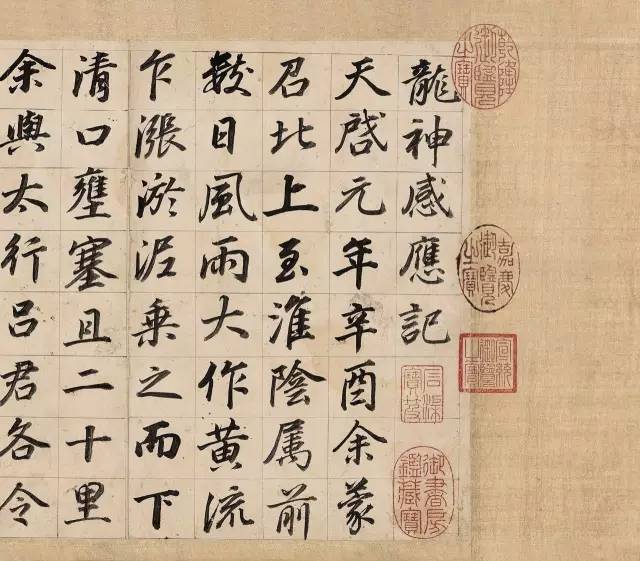 乾隆御覽之寶
嘉慶御覽之寶
宣統御覽之寶
龍神感應記
石渠寶笈
御書房鑑藏寶
天啓元年辛酉余蒙
召北上至淮陰属前
數日風雨大作黄流
乍漲淤泥乗之而下
清口壅塞且二十里
余與太行吕君各令